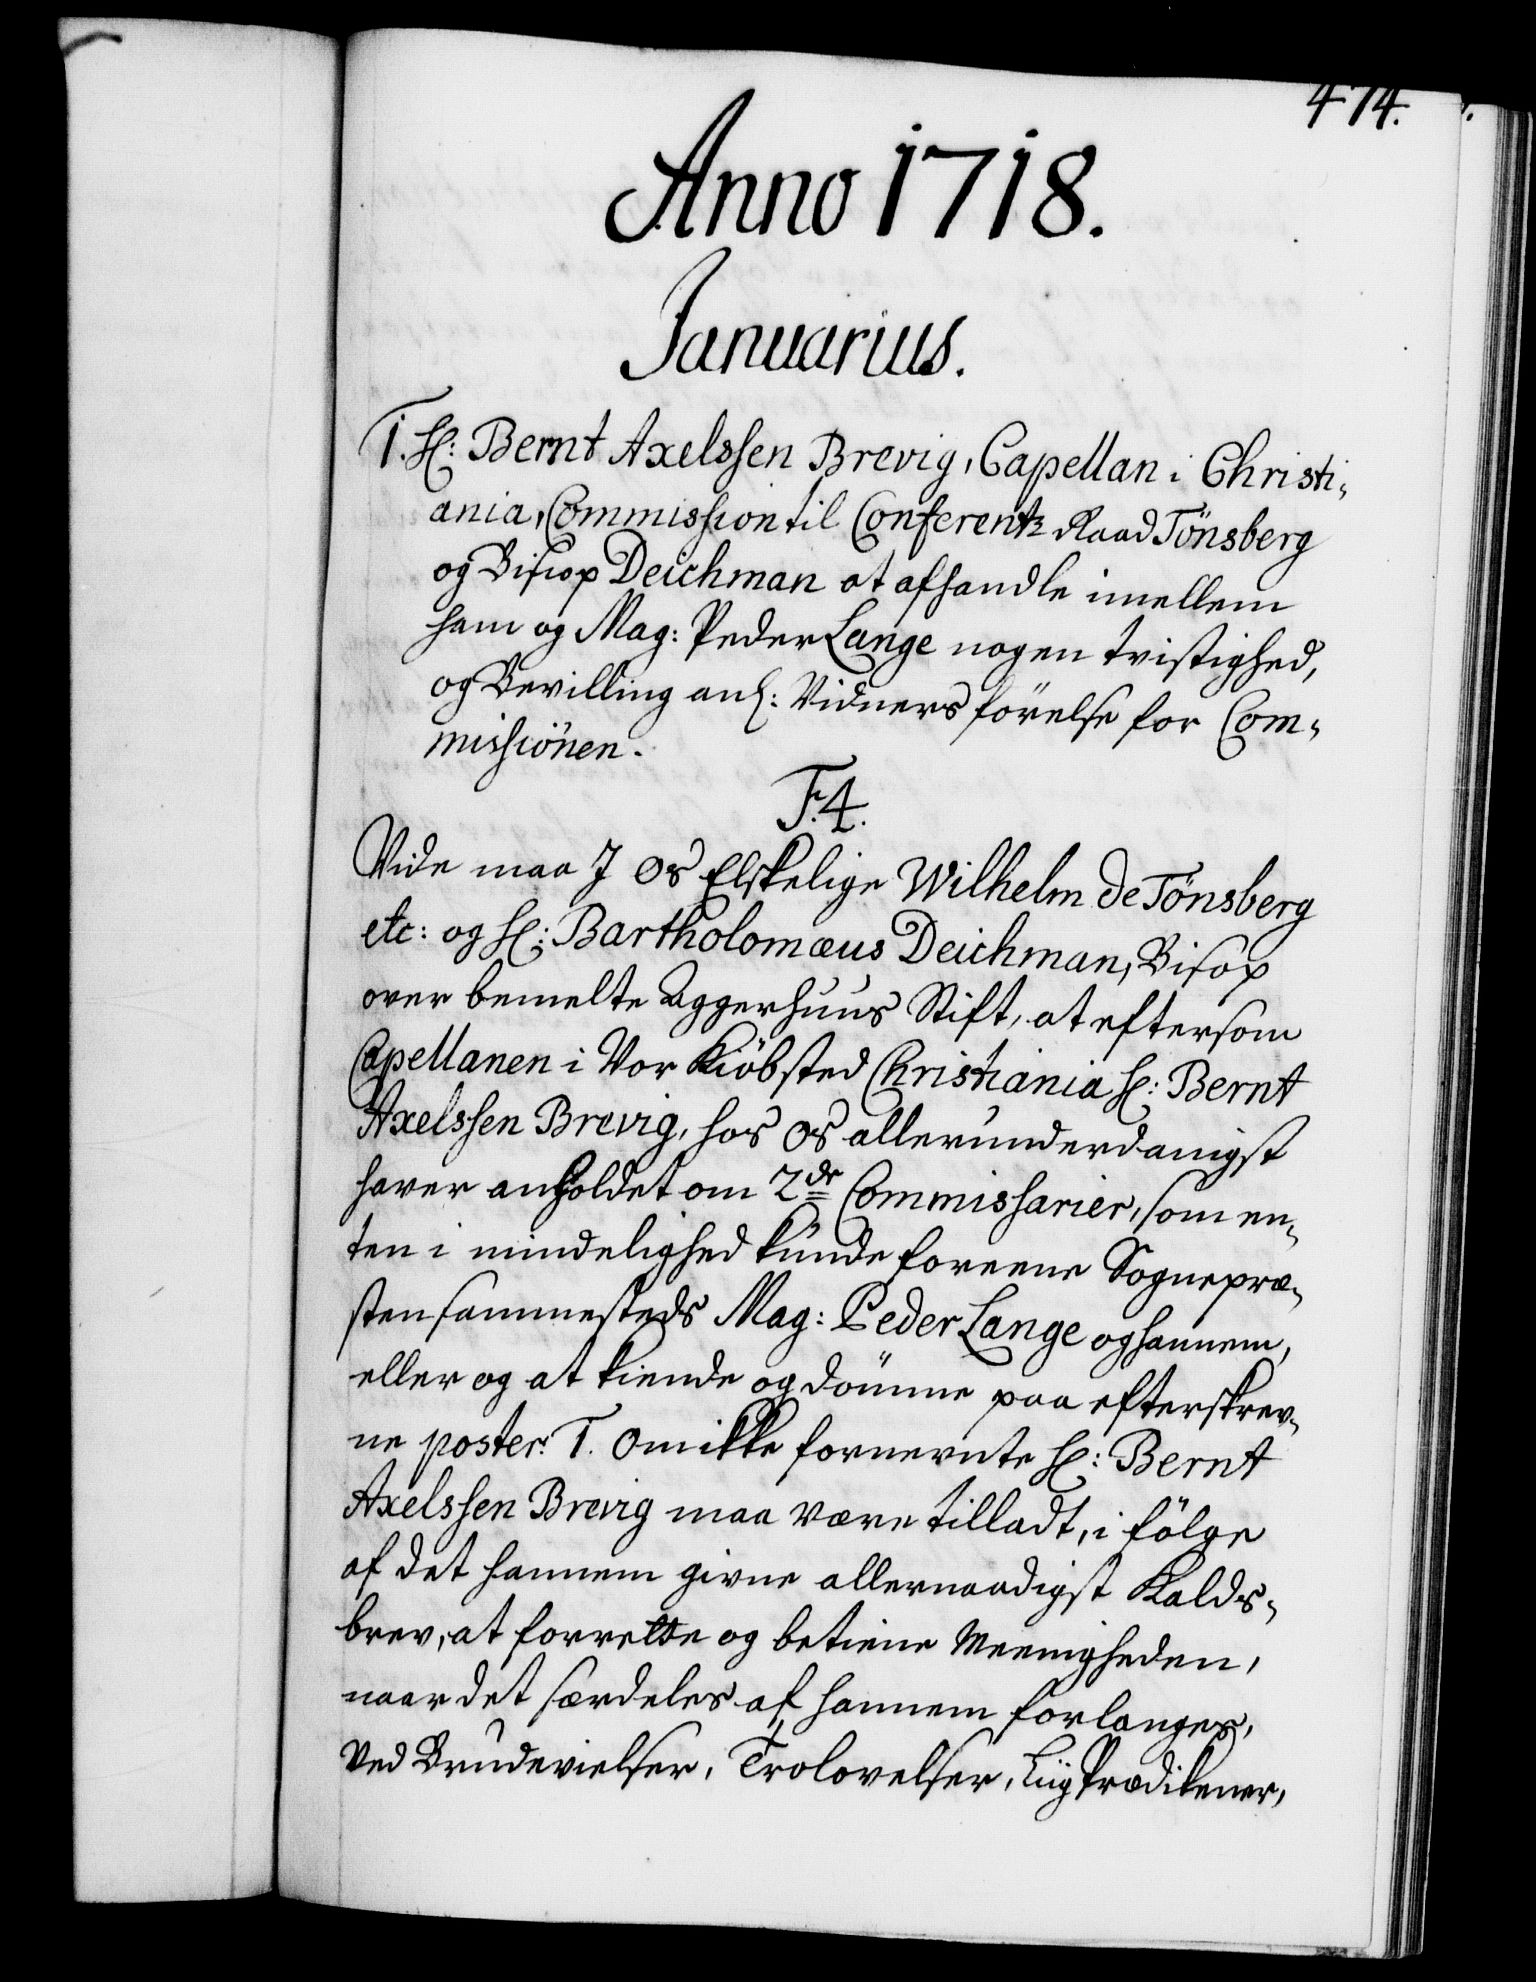 474.
Anno 1718.
Januarius.
1. Hr: Bernt Axelssen Brevig, Capellan i Christi-
ania, Commission til Conferentz Raad Tönsberg
og Bisop Deichman at afhandle imellem
ham og Mag: Peder Lange nogen tvistighed,
og Bevilling anl: Vidners förelse for Com-
missionen.
F. 4.
Vide maa I os Elskelige Wilhelm de Tönsberg
etc: og Hr: Bartholomæus Deichman, Bisop
over bemelte Aggershuus Stift, at eftersom
Capellanen i Vor Kiöbsted Christiania Hr: Bernt
Axelssen Brevig, hos os allerunderdanigst
haver anholdet om 2de Commissarier, som en-
ten i mindelighed kunde foreene Sognepræ-
sten sammesteds Mag: Peder Lange og hannem,
eller og at kiende og dömme paa efterskrev-
ne poster: 1. Om ikke fornevnte Hr: Bernt
Axelssen Brevig maa være tilladt, i fölge
af det hannem givne allernaadigst Kalds-
brev, at forrette og betiene Meenigheden,
naar det særdeles af hannem forlanges,
Ved Brudevielser, Trolovelser, Liig Prædikener,